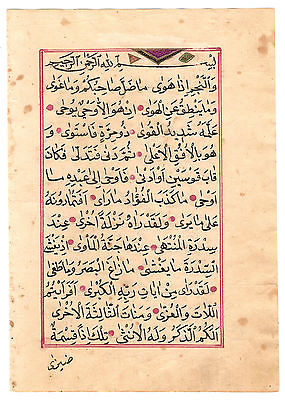 بِسْمِ اللهِ الرَّحْمٰنِ الرَّحِيْمِ
وَالنَّجْمِ اِذَا هَوٰى مَاضَلَّ صَاحِبُكُمْ وَمَا غَوٰى
وَمَا يَنْطِقُ عَنِ الْهَوٰى اِنْ هُوَ اِلَّا وَحْيٌ يُوحٰى
عَلَّمَهُ شَدِيدُ الْقُوٰى ذُو مِرَّةٍ فَاسْتَوٰى وَ
هُوَ بِالْاُفُقِ الْاَعْلٰى ثُمَّ دَنٰى فَتَدَلّٰى فَكَانَ
قَابَ قَوْسَيْنِ اَوْ اَدْنٰى فَاَوْحٰى اِلٰى عَبْدِهٖ مَا
اَوْحٰى مَا كَذَبَ الْفُؤَادُ مَا رَاٰى اَفَتُمَارُونَهُ
عَلٰى مَا يَرٰى وَلَقَدْ رَاٰهُ نَزْلَةً اُخْرٰى عِنْدَ
سِدْرَةِ الْمُنْتَهٰى عِنْدَهَا جَنَّةُ الْمَأْوٰى اِذْ يَغْشَى
السِّدْرَةَ مَا يَغْشٰى مَا زَاغَ الْبَصَرُ وَمَا طَغٰى
لَقَدْ رَاٰى مِنْ اٰيَاتِ رَبِّهِ الْكُبْرٰى اَفَرَاَيْتُمُ
اللَّاتَ وَالْعُزّٰى وَمَنَاتَ الثَّالِثَةَ الْاُخْرٰى
اَلَكُمُ الذَّكَرُ وَلَهُ الْاُنْثٰى تِلْكَ اِذًا قِسْمَةٌ
ضِيزٰى